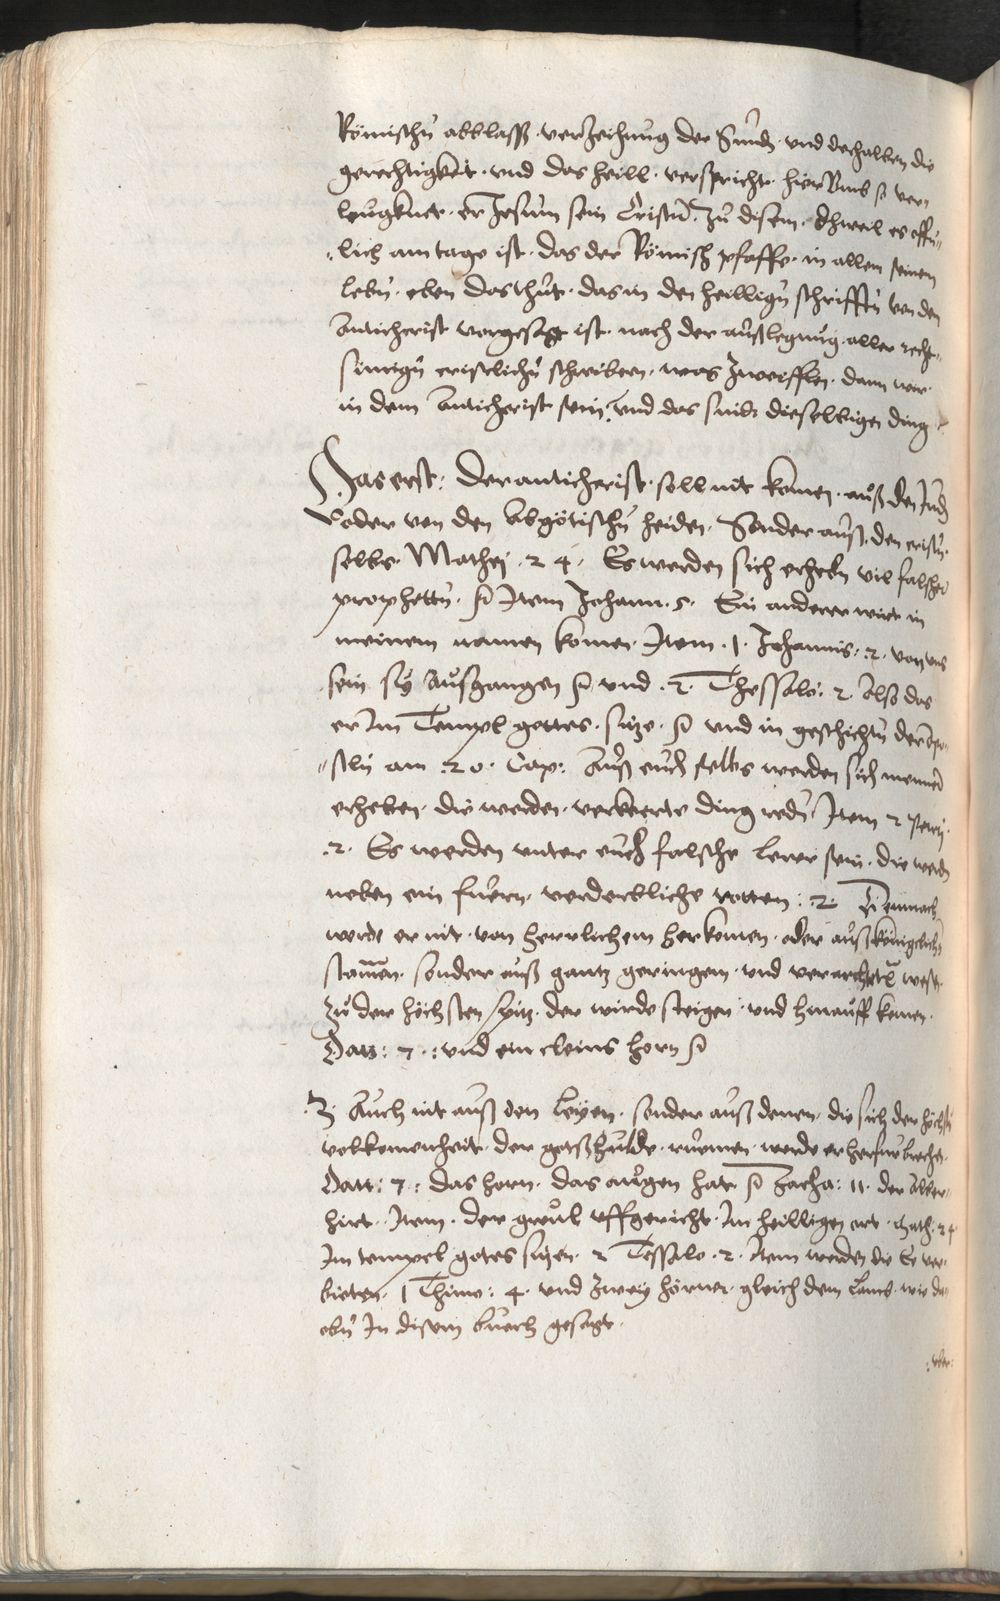 Römischn̄ abblasß · verzeihung der Sünd · vnd dehalben die
gerechtigkeit · vnd das heill · verspricht · hier Vmb so ver⸗
leugknet · er Jesum sein Cristū · zu disem · Dhweil es offn̄⸗
⸗lich am tage ist · das der Römisch pfaffe · in allem seinem
lebn̄ · eben das thut · das in den heillign̄ schrifftn̄ von den
Anticherist vorgesagt ist · nach der außlegung · aller recht⸗
sinnign̄ cristlichn̄ schreibern · was zweifflen · dann wir
in dem Anticherist sein · vnd das sind dieselbigen ding
Das erst : Der anticherist · soll nit komen · auß den Judn̄
oder von den Abgötischn̄ heiden · Sonder auß · den cristn̄ ·
selbs · Mathej · 24 · Es werden sich erhebn̄ vil falscher
prophettn̄ · Item Johann · 5 · Ein anderer wirt in
meinem namen komen · Item · 1 · Johannis · 2 · von vns
sein sy außgangen vnd · 2 · Thessalo : 2 · Also das
er Im Tempel gottes · sitze · vnd in geschichtn̄ der Apo⸗
⸗stln̄ am · 20 · Cap : Auß euch selbs werden sich menner
erheben · die werden · verkeerte ding redn̄ Item 2 Petrj
· 2 · Es werden vnter euch falsche lerer sein · die werdn̄
neben ein fuern · verderbliche rotten : 2 · Demnach
werdt er nit · von herrlichem herkomen · oder auß königlichē
stam̄en · sonder auß gantz geringem · vnd verachtem̄ wesen
zu der höchsten spitz · der wirde steigen · vnd hinauff komen ·
Dan : 7 · : vnd ein cleins horn
3 · Auch nit auß den Leyen · sonder auß denen · die sich der höchstn̄
volkomenheit · der gotßhulde · ruemen · werde er herfur brechen ·
Dan : 7 : das horn · das augen hat · Zacha : 11 · der Aber⸗
hirt · Item · der greul vffgericht · Im heilligen ort · Math : 24
Im tempel gotes sitzen · 2 Tessalo · 2 · Item werden die Ee ver⸗
bieten · 1 Thimo : 4 · vnd zwey hörner · gleich dem lamb · wie da
obn̄ In disem buech gesagt ·